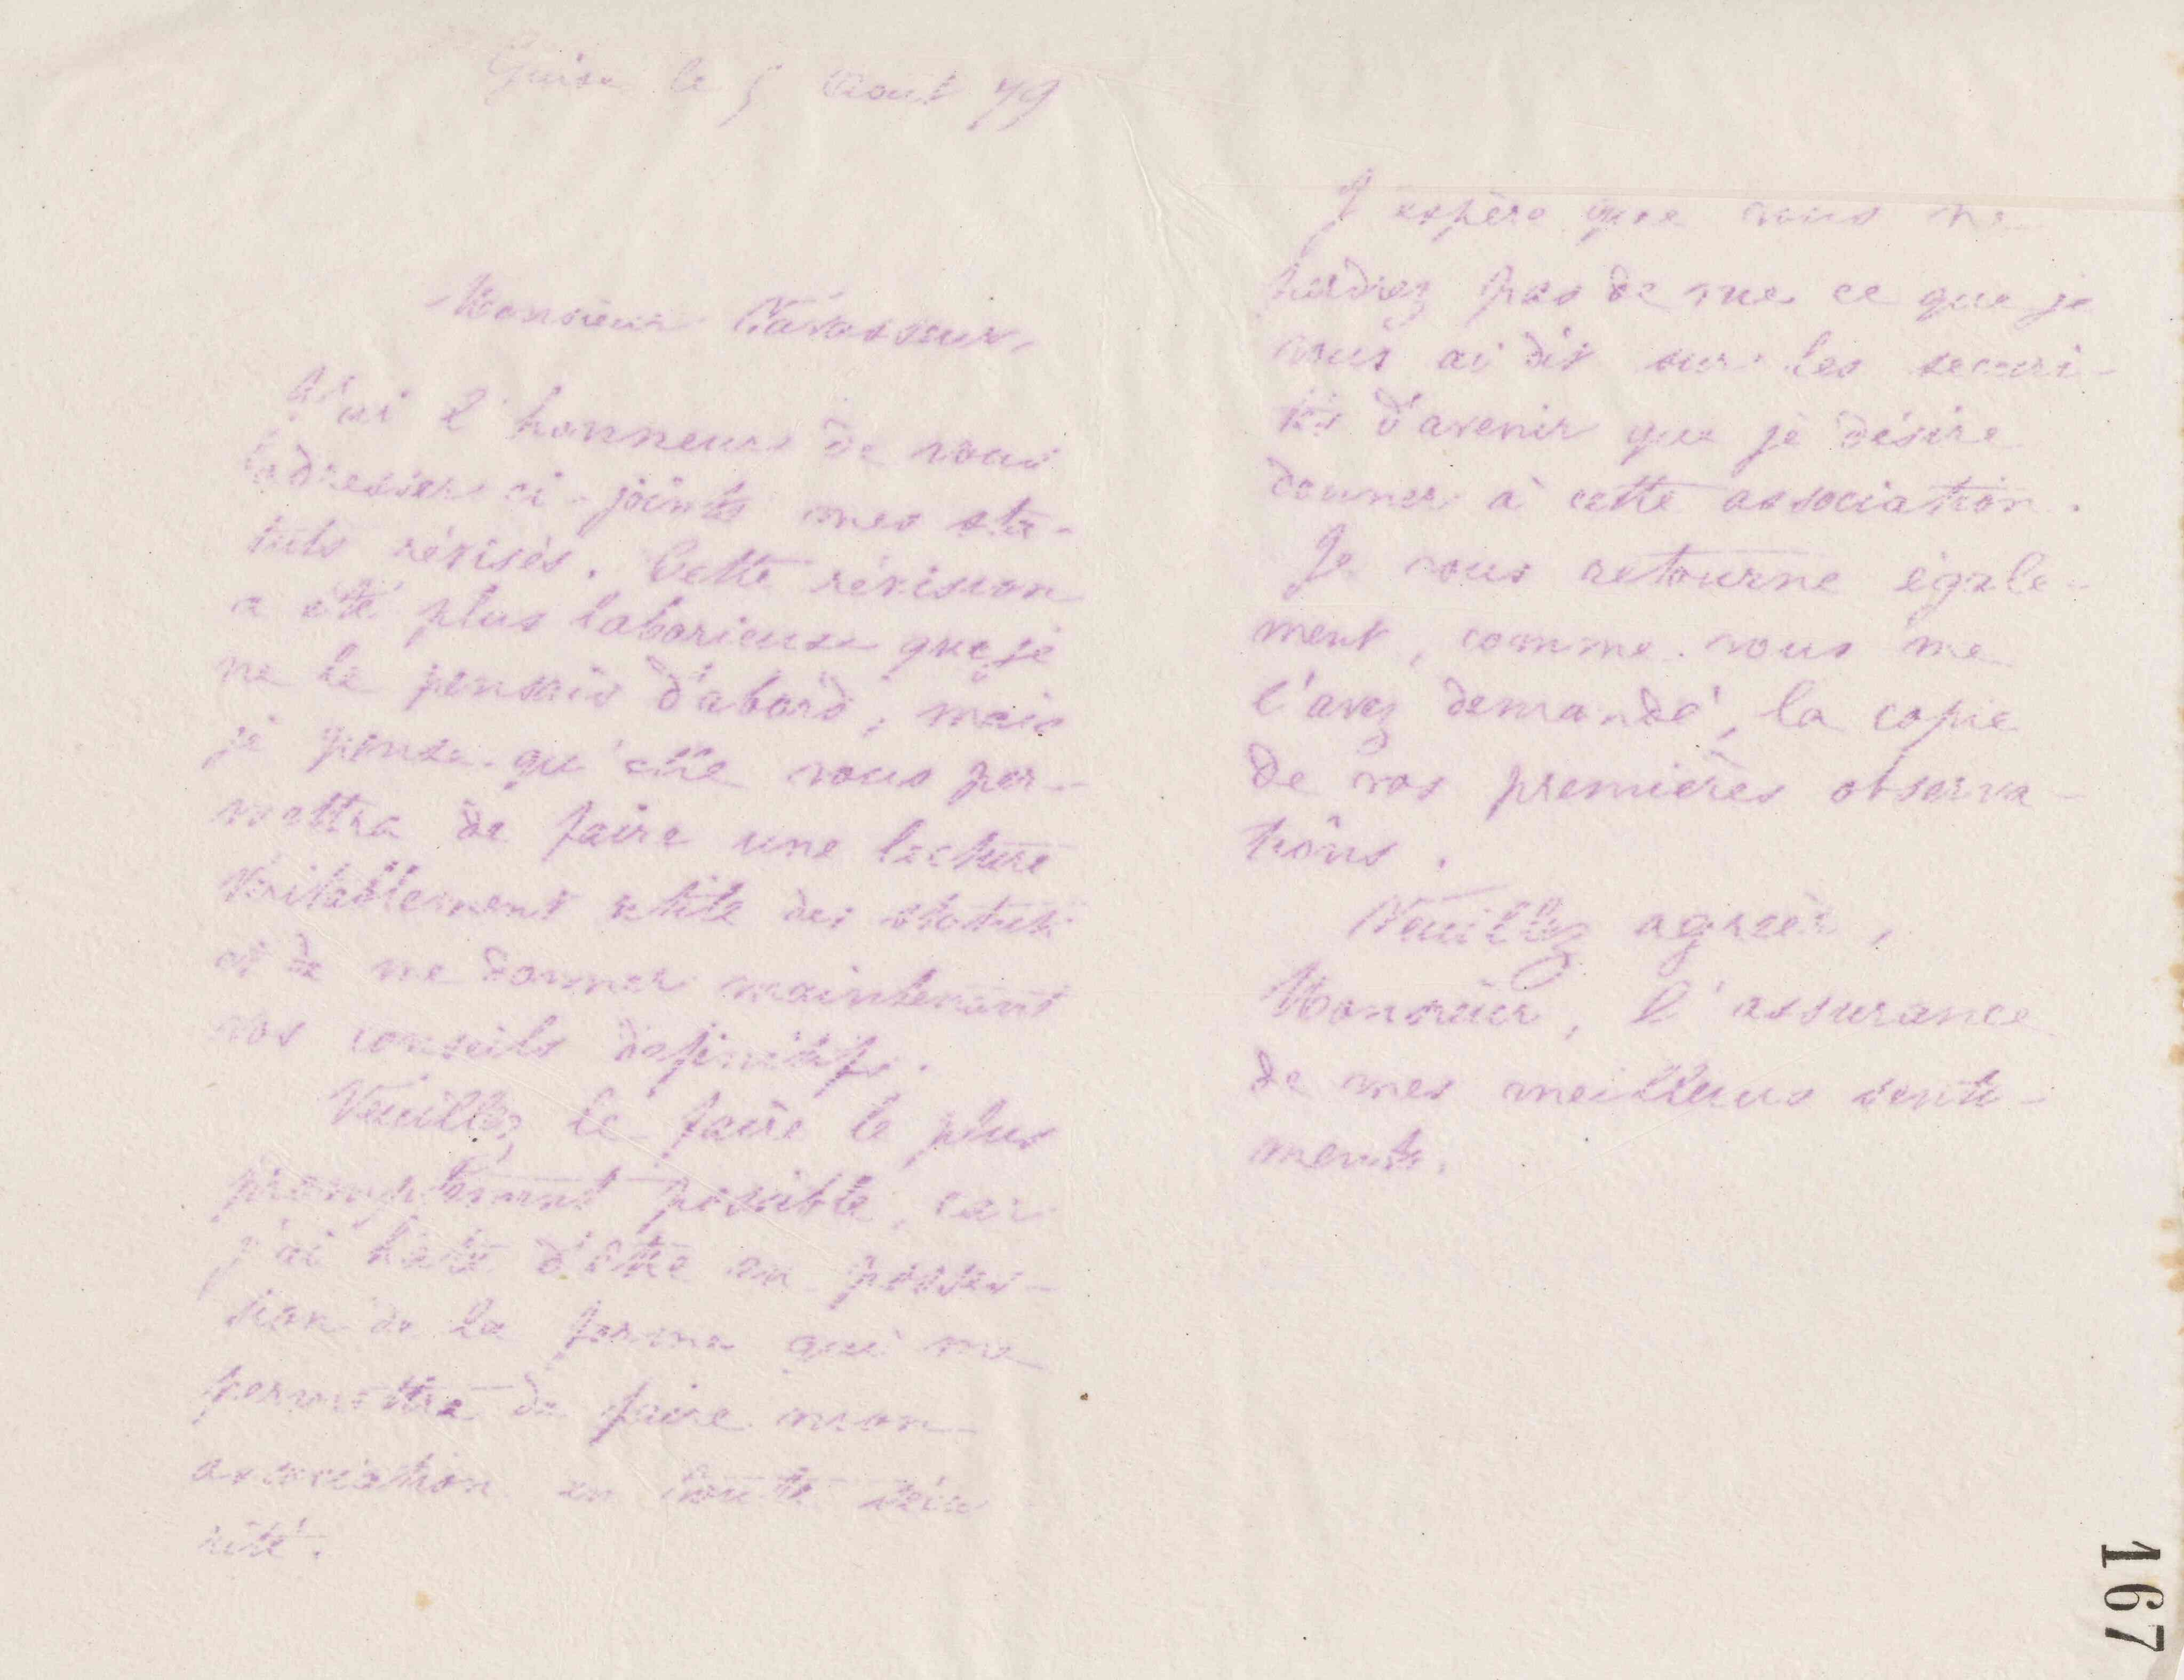 Guise le 5 Aout 79
Monsieur Vavasseur,
J'ai l'honneur de vous
adresser ci-joints mes sta-
tuts révisés. Cette révision
a été plus laborieuse que je
ne le pensais d'abord, mais
je pense qu'elle vous per-
mettra de faire une lecture
véritablement utile des statuts
et de me donner maintenant
vos conseils définitifs.
Veuillez le faire le plus
promptement possible, car
j'ai hâte d'être en posses-
sion de la forme qui me
permettra de faire mon
association en toute sécu
rité.
J'espère que vous ne
perdrez pas de vue ce que je
vous ai dit sur les securi-
tés d'avenir que je désire
donner à cette association.
Je vous retourne égale-
ment, comme vous me
l'avez demandé, la copie
de vos premières observa-
tions.
Veuillez agréer,
Monsieur, l'assurance
de mes meilleurs senti-
ments.
167